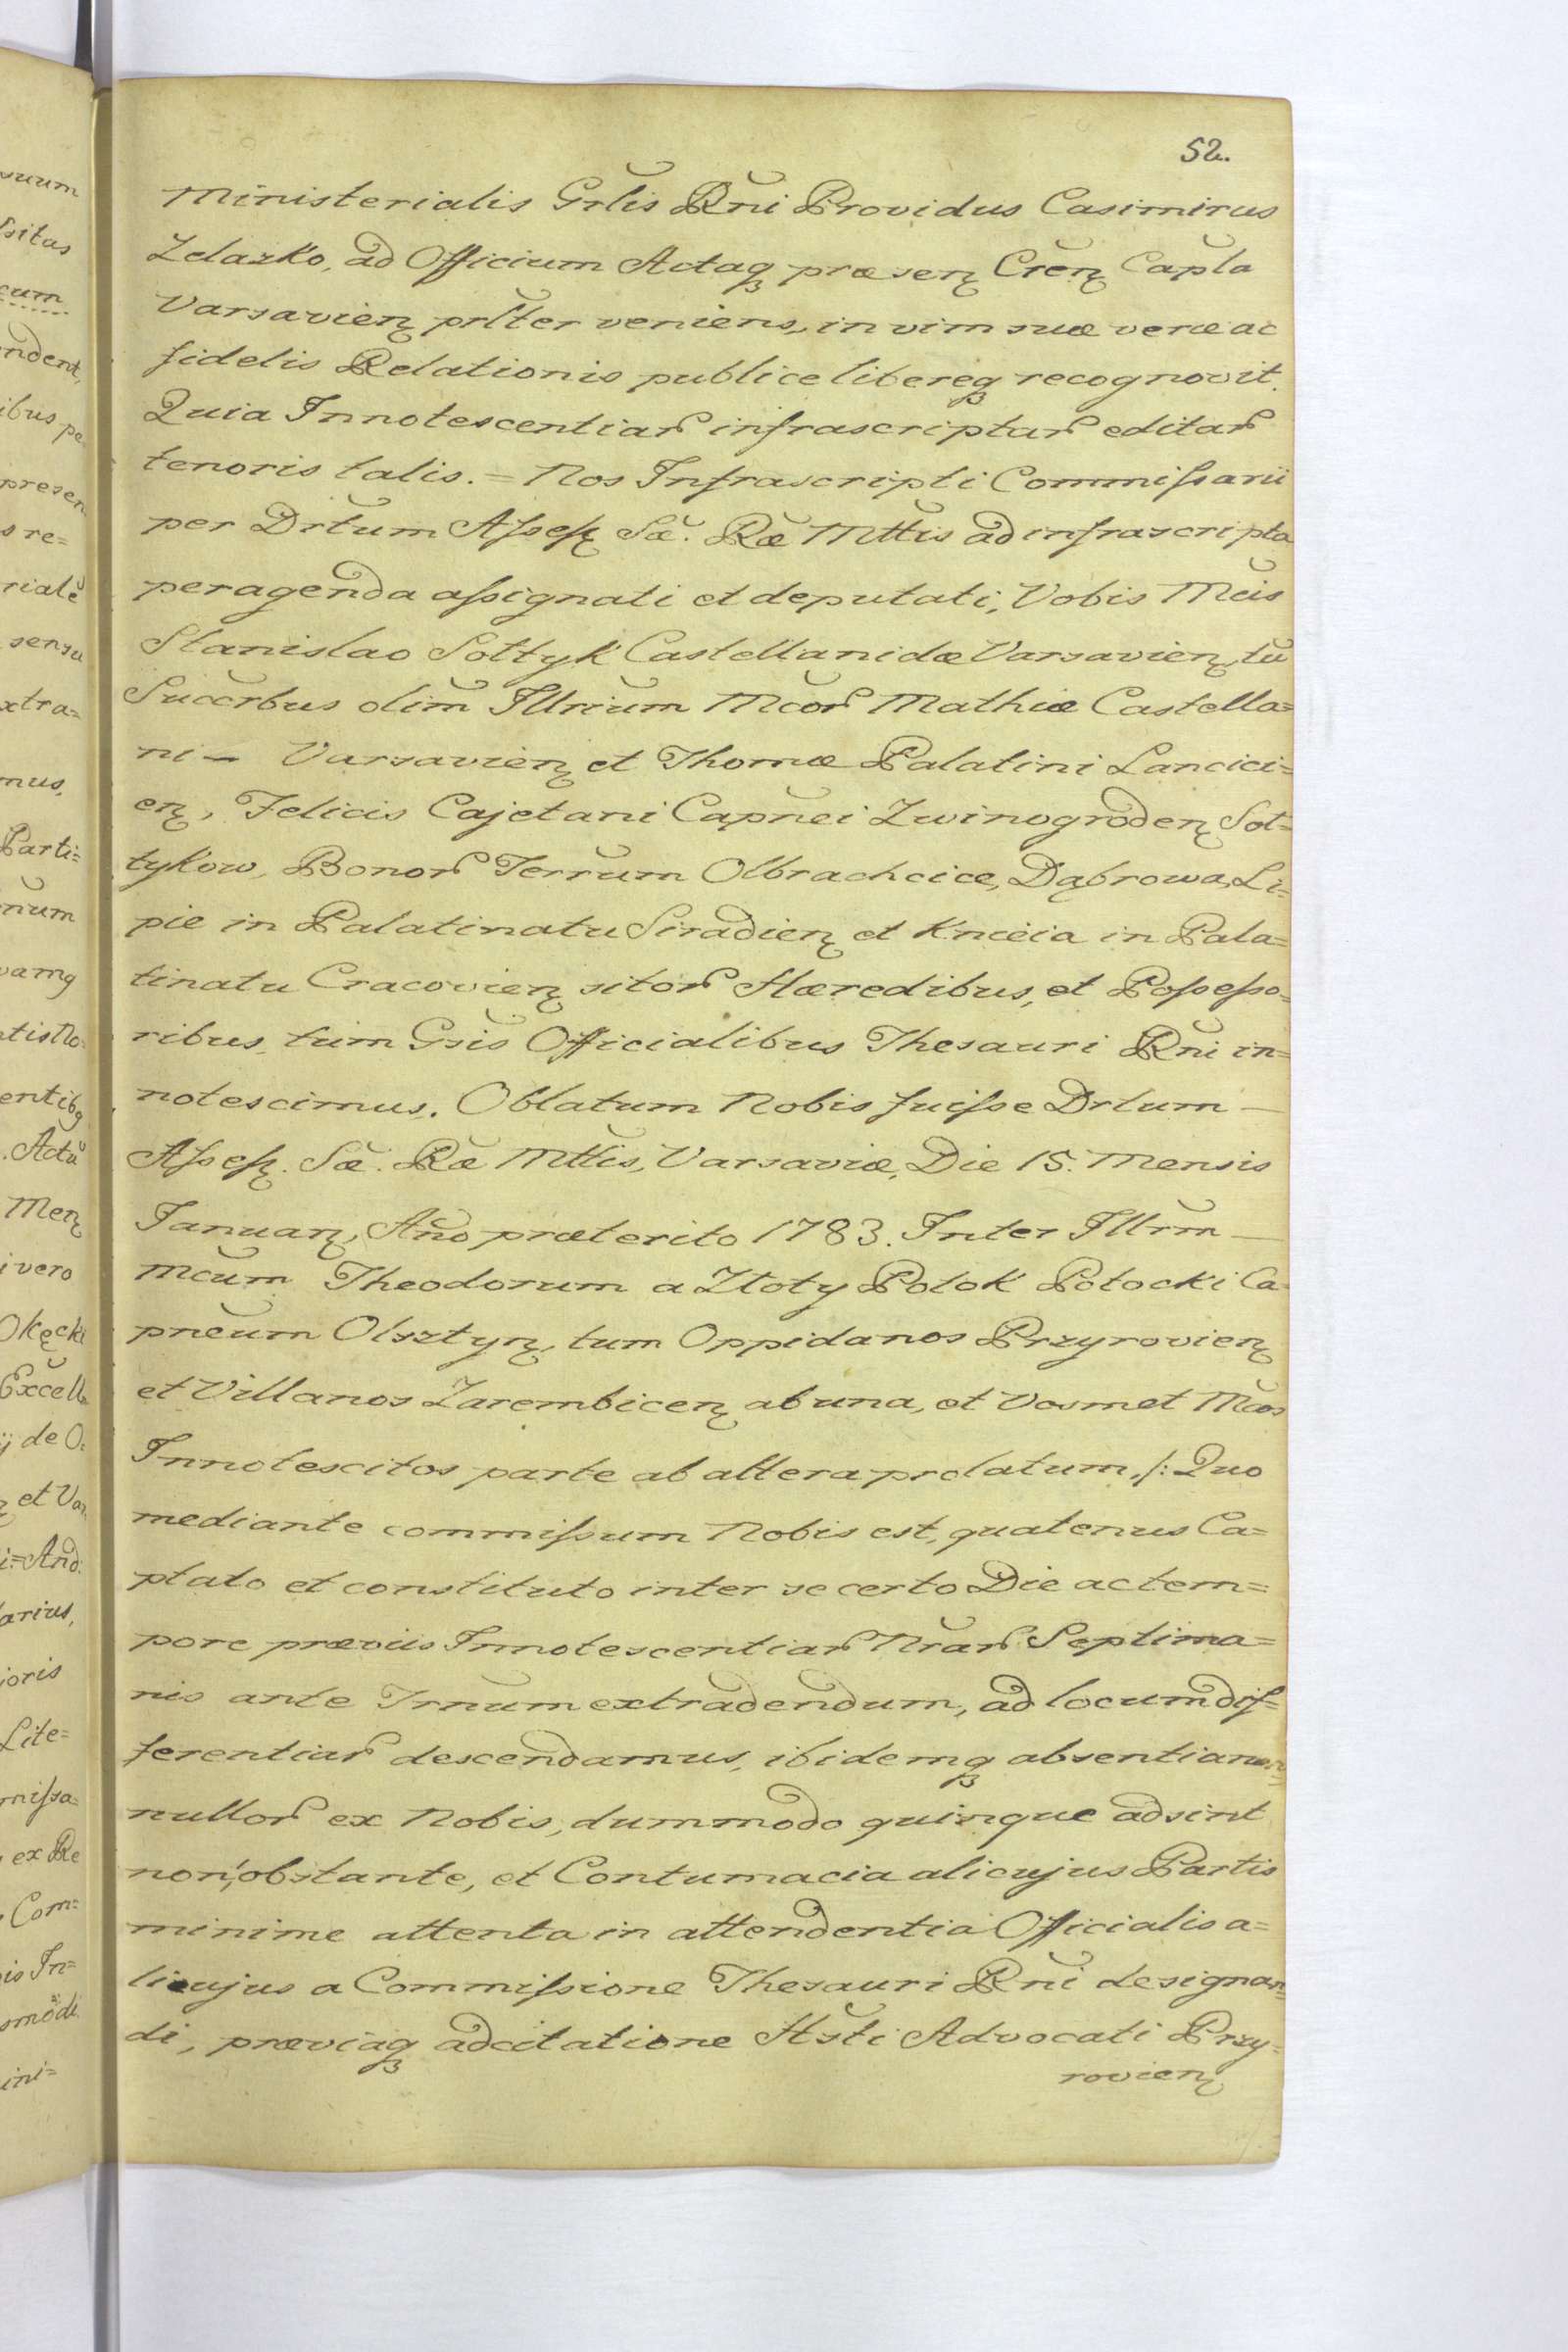 52.
Ministerialis Grl̃is Rñi Providus Casimirus
Zelazko, ad Officium Actaqꝫ præsenꝫ Crẽnꝫ Capl̃a
Varsavienꝫ prl̃ter veniens, in vim suæ veræ ac
fidelis Relationis publice libereqꝫ recognovit.
Quia Innotescentiarꝝ infrascriptarꝝ editarꝝ
tenoris talis. = Nos Infrascripti Commiſsarii
per Drtum Aſseſꝫ Sæ̃. Ræ̃ Mttis ad infrascripta
peragenda aſsignati et deputati, Vobis Mcis
Stanislao Sołtyk Castellanidæ Varsavienꝫ, tũ
Succrbus olim Illrium Mcorꝝ Mathiæ Castella=
ni – Varsavienꝫ et Thomæ Palatini Lancici=
enꝫ, Felicis Cajetani Capñei Zwinogrodenꝫ Soł=
tykow, Bonorꝝ Terrum Olbrachcice, Dąbrowa, Li=
pie in Palatinatu Siradienꝫ et Knieia in Pala=
tinatu Cracovienꝫ sitorꝝ Hæredibus, et Poſseſso=
ribus, tum Gsis Officialibus Thesauri Rñi in=
notescimus. Oblatum Nobis fuiſse Drtum –
Aſseſꝫ. Sæ̃. Ræ̃ Mttis, Varsaviæ, Die 15. Mensis
Januarꝫ, Año præterito 1783. Inter Illrm –
Mcum Theodorum a Złoty Potok Potocki Ca=
pñeum Olsztynꝫ, tum Oppidanos Przyrovienꝫ
et Villanos Zarembicenꝫ ab una, et Vosmet Mcos
Innotescitos parte ab altera prolatum, /: Quo
mediante commiſsum Nobis est, quatenus Ca=
ptato et constituto inter se certo Die ac tem=
pore præviis Innotescentiarꝝ Nrarꝝ Septima=
nis ante Trnum extradendum, ad locum dif=
ferentiarꝝ descendamus, ibidemqꝫ absentia non=
nullorꝝ ex Nobis, dummodo quinque adsint
non obstante, et Contumacia alicujus Partis
minime attenta in attendentia Officialis a=
licujus a Commiſsione Thesauri Rñi designan=
di, præviaqꝫ adcitatione Hsti Advocati Przy=
rovienꝫ